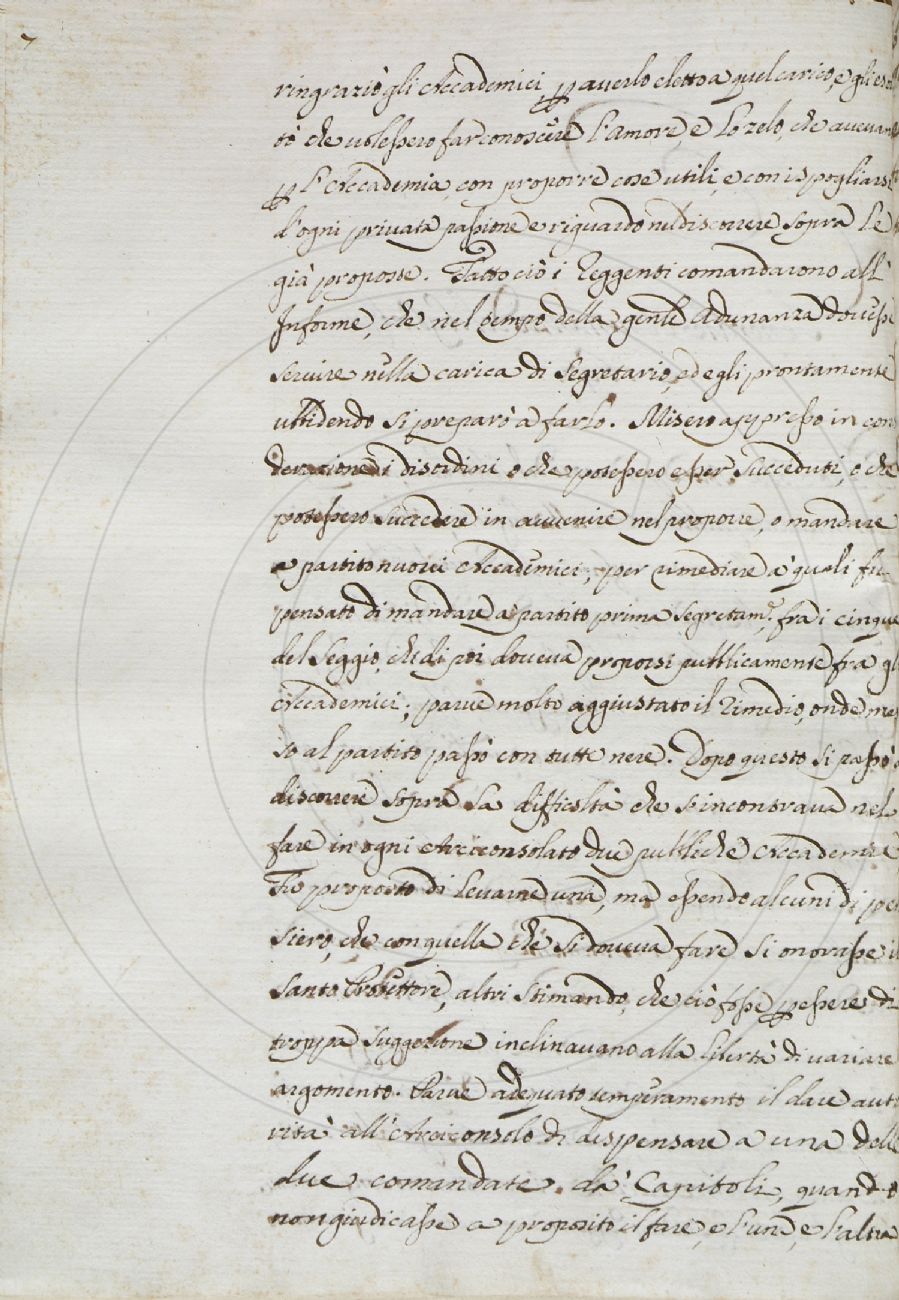 ringraziò gli Accademici p averlo eletto a quel carico, e gli esor
tò che volessero far conoscere l'Amore, e lo zelo, che avevan
p l'Accademia con proporre cose utili, e con ispogliarsi
d'ogni privata passione e riguardo nel discorrere sopra le
già proposte. Fatto ciò i Reggenti comandarono all'
Informe, che nel tempo della genle Adunanza dovesse
servire nella carica di Segretario, ed egli prontamente
ubbidendo si preparò a farlo. Misero appresso in consi
derazione i disordini o che potessero esser succeduti, o che
potessero succedere in avvenire nel proporre, o mandare
a partito nuovi Accademici, per rimediare a' quali fu
pensato di mandare a partito prima segretam.e fra i cinque
del Seggio, chi di poi doveva proporsi pubblicamente fra gl
Accademici; parve molto aggiustato il rimedio, onde mes
so al partito passò con tutte nere. Dopo questo si passò a
discorrere sopra la difficoltà che s'incontrava nel
fare in ogni Arciconsolato due pubbliche Accademie
Fu proposto di levarne una, ma essendo alcuni di pen
siero, che con quella che si doveva fare si onorasse il
Santo Protettore, altri stimando, che ciò fosse p essere di
troppa suggezione inclinavano alla libertà di variare
argomento. Parve adeguato temperamento il dare auto
rità all'Arciconsolo di dispensare a una delle
due comandate da' Capitoli, quando
non giudicasse a proposito il fare, e l'una, e l'altra